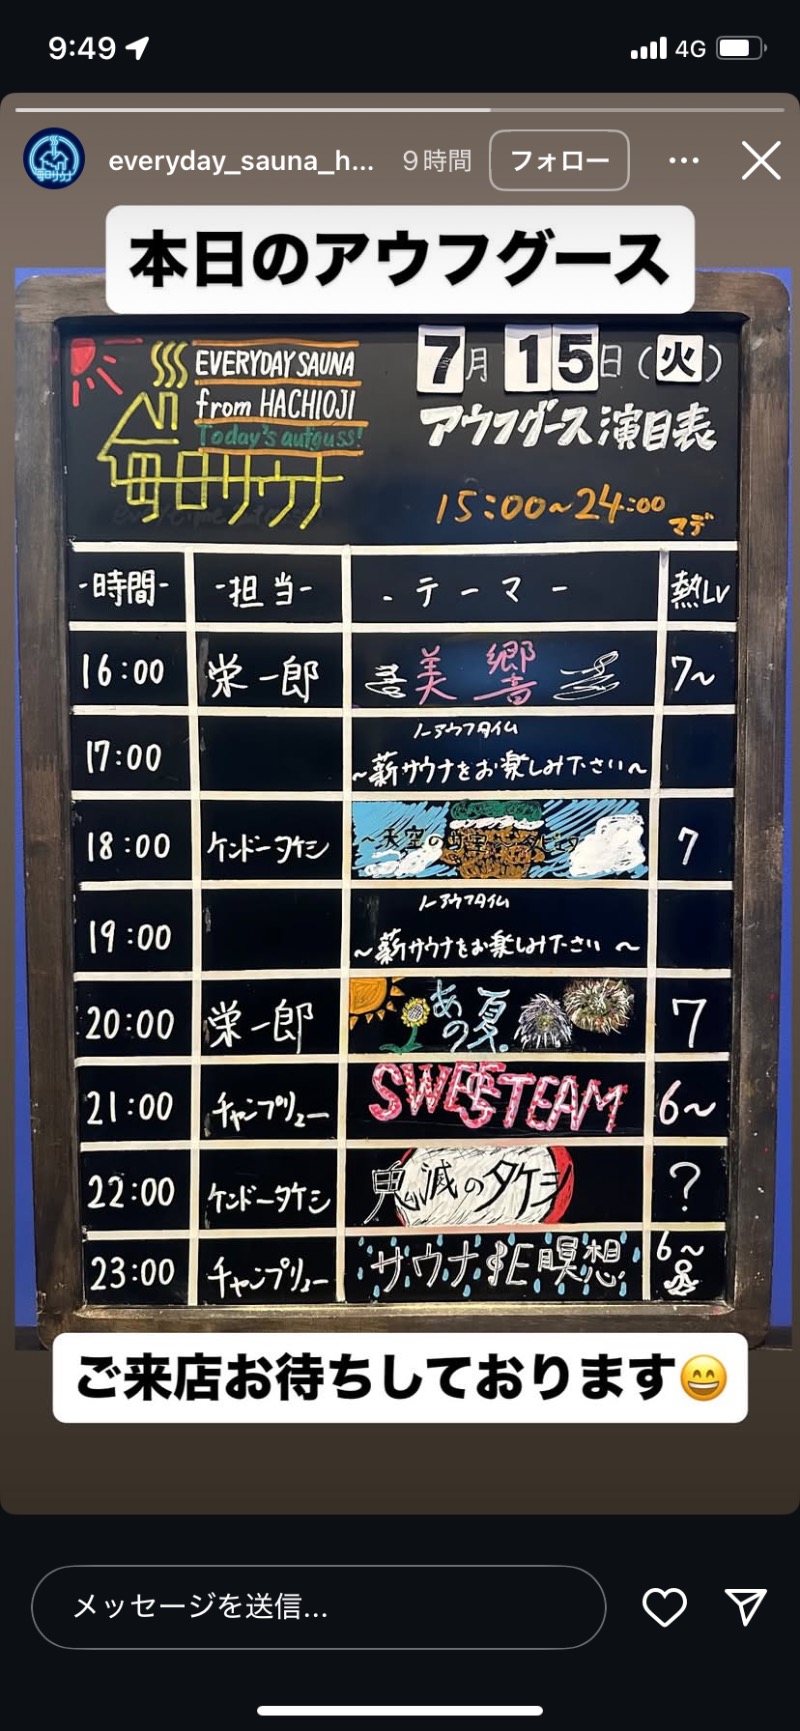 9:49
4G
everyday_sauna_h...
9時間
フォロー
本日のアウフグース
EVERYDAY SAUNA
from HACHIOJI
Today's aufguss!
毎日サウナ
7月15日(火)
アウフグース演目表
15:00~24:00マデ
-時間- -担当- -テーマ- 熱Lv
16:00 栄一郎 美響 7~
17:00 ノーアウフタイム
~薪サウナをお楽しみ下さい~
18:00 ケンドータケシ ~天空の 7
19:00 ノーアウフタイム
~薪サウナをお楽しみ下さい~
20:00 栄一郎 あの夏。 7
21:00 チャンプリュー SWEETEAM 6~
22:00 ケンドータケシ 鬼滅のタケシ ?
23:00 チャンプリュー サウナDE瞑想 6~
ご来店お待ちしております😄
メッセージを送信...